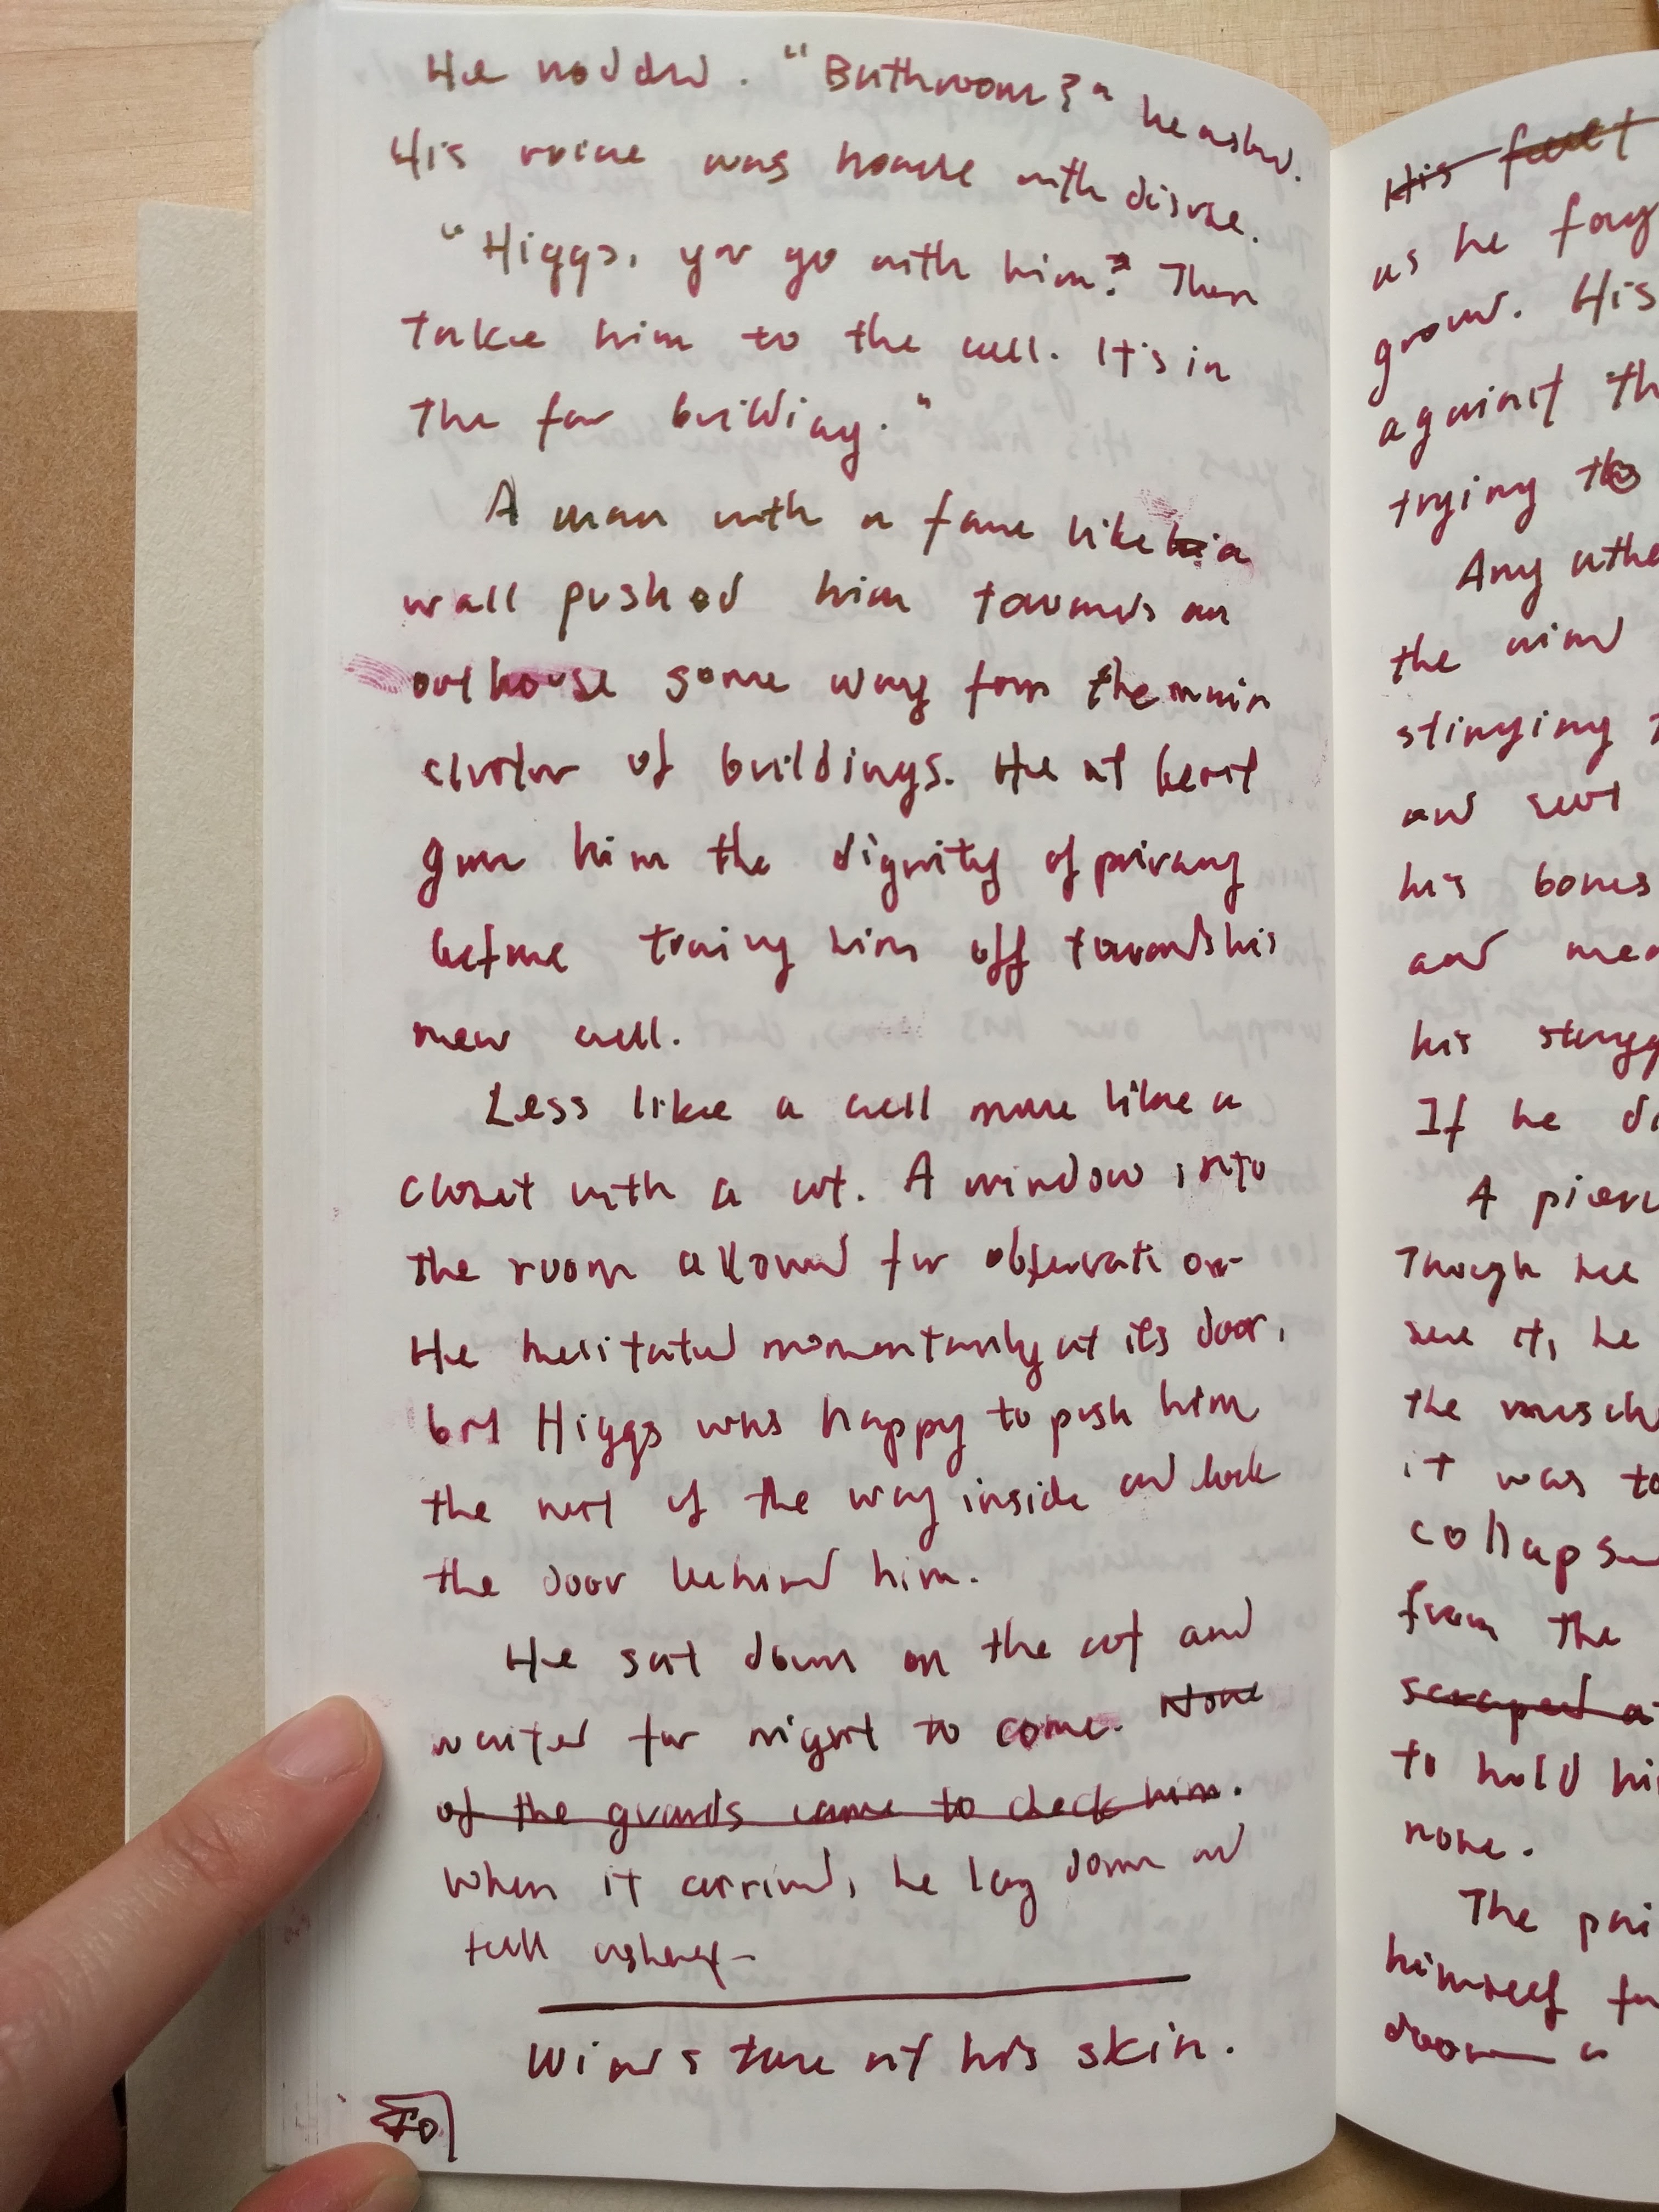 He nodded. "Bathroom?" he asked.
His voice was hoarse with disuse.
"Higgs, you go with him? Then
take him to the cell. It's in
the far building."
A man with a face like a
wall pushed him towards an
outhouse some way from the main
cluster of buildings. He at least
gave him the dignity of privacy
before towing him off towards his
new cell.
Less like a cell more like a
closet with a cot. A window into
the room allowed for observation.
He hesitated momentarily at its door,
but Higgs was happy to push him
the rest of the way inside and lock
the door behind him.
He sat down on the cot and
waited for night to come. None
of the guards came to check him.
When it arrived, he lay down and
fell asleep.
Winds tore at his skin.
His feet
as he
ground. His
against
trying to
Any
the wind
stinging
and sent
his bones
and
his
If he
A
Though he
see it, he
the
it was
from the
scraped
to hold
none.
The
himself
down